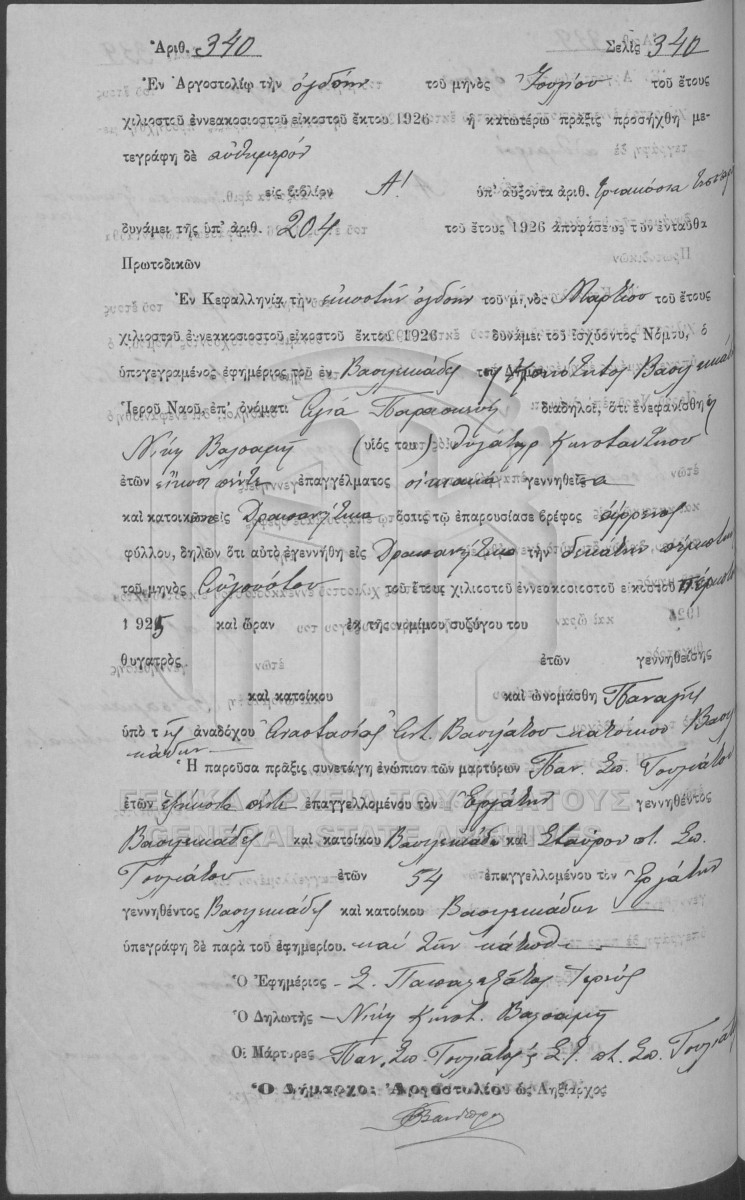 Ἀριθ. 340 Σελὶς 340
Ἐν Ἀργοστολίῳ τὴν ὀγδόην τοῦ μηνὸς Ἰουλίου τοῦ ἔτους
χιλιοστοῦ ἐννεακοσιοστοῦ εἰκοστοῦ ἕκτου 1926 ἡ κατωτέρω πρᾶξις προσήχθη με-
τεγράφη δὲ αὐθημερόν
εἰς βιβλίον Α! ὑπ' αὔξοντα ἀριθ. τριακόσια
δυνάμει τῆς ὑπ' ἀριθ. 204 τοῦ ἔτους 1926 ἀποφάσεως τῶν ἐνταῦθα
Πρωτοδικῶν
Ἐν Κεφαλληνίᾳ τὴν εἰκοστὴν ὀγδόην τοῦ μηνὸς Μαρτίου τοῦ ἔτους
χιλιοστοῦ ἐννεακοσιοστοῦ εἰκοστοῦ ἕκτου 1926 δυνάμει τοῦ ἰσχύοντος Νόμου, ὁ
ὑπογεγραμένος ἐφημέριος τοῦ ἐν Βασιλικάδες τοῦ Δήμου Κοινότητος
Ἱεροῦ Ναοῦ, ἐπ' ὀνόματι Ἁγιά Παρασκευή διαδηλοῖ, ὅτι ἐνεφανίσθη ἡ
Νίκη Βαλσαμῆ (υἱὸς του) θυγάτηρ Κωνσταντίνου
ἐτῶν εἴκοσι πέντε ἐπαγγέλματος οἰκιακά γεννηθεῖσα
καὶ κατοικῶν εἰς Δρακοπουλάτα ὅστις τῷ ἐπαρουσίασε βρέφος ἄρρενος
φύλλου, δηλῶν ὅτι αὐτὸ ἐγεννήθη εἰς τὴν δεκάτην πέμπτην
τοῦ μηνὸς Αὐγούστου τοῦ ἔτους χιλιοστοῦ ἐννεακοσιοστοῦ εἰκοστοῦ πέμπτου
1925 καὶ ὥραν ἐκ τῆς νομίμου συζύγου του
θυγατρὸς ἐτῶν γεννηθείσης
καὶ κατοίκου καὶ ὠνομάσθη Παναγῆς
ὑπὸ τῆς ἀναδόχου Ἀναστασίας Ἀντ. Βασιλάτου κατοίκου Βασι
λικάδων
Ἡ παροῦσα πρᾶξις συνετάγη ἐνώπιον τῶν μαρτύρων Παν. Σπ. Τουλιάτου
ἐτῶν ἑξήκοντα πέντε ἐπαγγελλομένου τὸν Ἐργάτην γεννηθέντος
Βασιλικάδες καὶ κατοίκου Βασιλικάδες καὶ Σταύρου Σπ.
Τουλιάτου ἐτῶν 54 ἐπαγγελλομένου τὸν Ἐργάτην
γεννηθέντος Βασιλικάδες καὶ κατοίκου Βασιλικάδων
ὑπεγράφη δὲ παρὰ τοῦ ἐφημερίου. καί τῶν κάτωθι
Ὁ Ἐφημέριος Σ. Ἱερεύς
Ὁ Δηλωτὴς Νίκη Κωνστ. Βαλσαμῆ
Οἱ Μάρτυρες Παν. Σπ. Τουλιάτος Στ. Σπ. Τουλιάτος
Ὁ Δήμαρχος Ἀργοστολίου ὡς Ληξίαρχος
ΓΕΝΙΚΑ ΑΡΧΕΙΑ ΤΟΥ ΚΡΑΤΟΥΣ
GENERAL STATE ARCHIVES